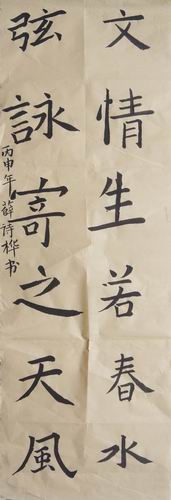 文情生若春水
弦詠寄之天風
丙申年薛诗桦书